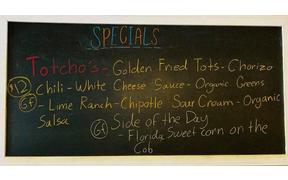 SPECIALS
Totcho's - Golden Fried Tots - Chorizo
$12 Chili - White Cheese Sauce - Organic Greens
Gf - Lime Ranch - Chipotle Sour Cream - Organic
Salsa
Gf Side of the Day
- Florida Sweet corn on the
Cob